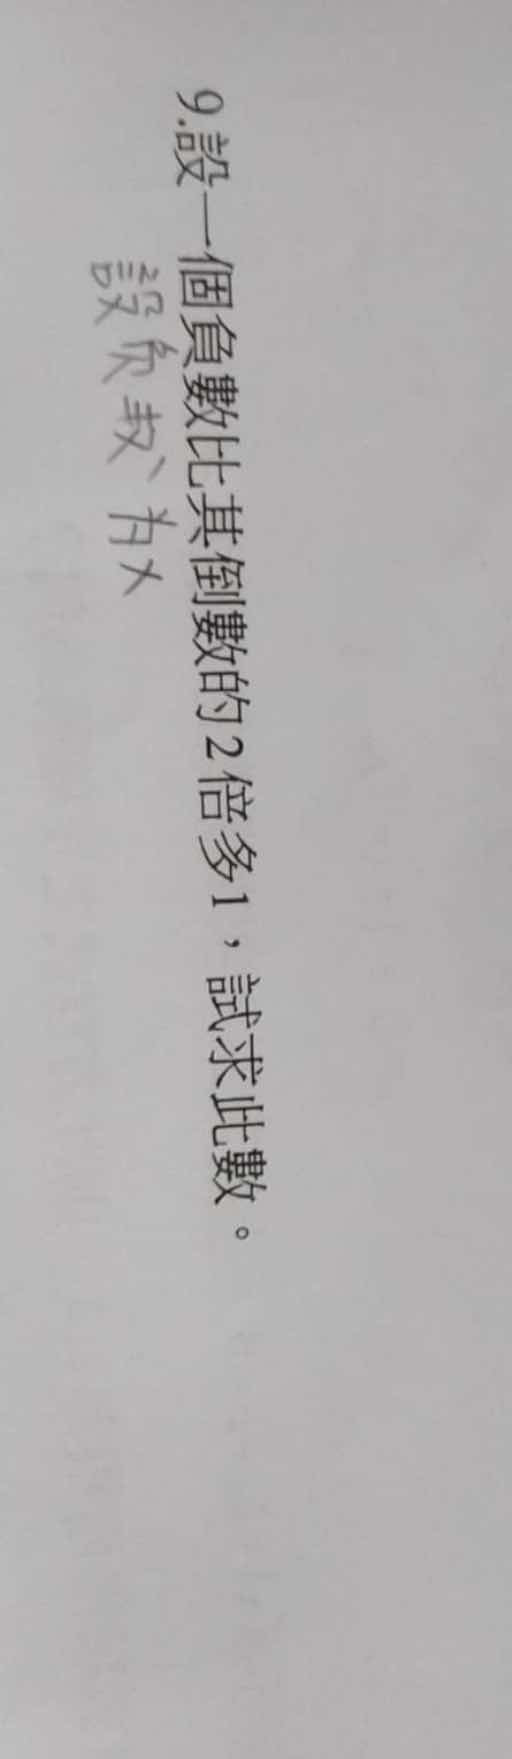 9.設一個負數比其倒數的2倍多1，試求此數。
設負数為x